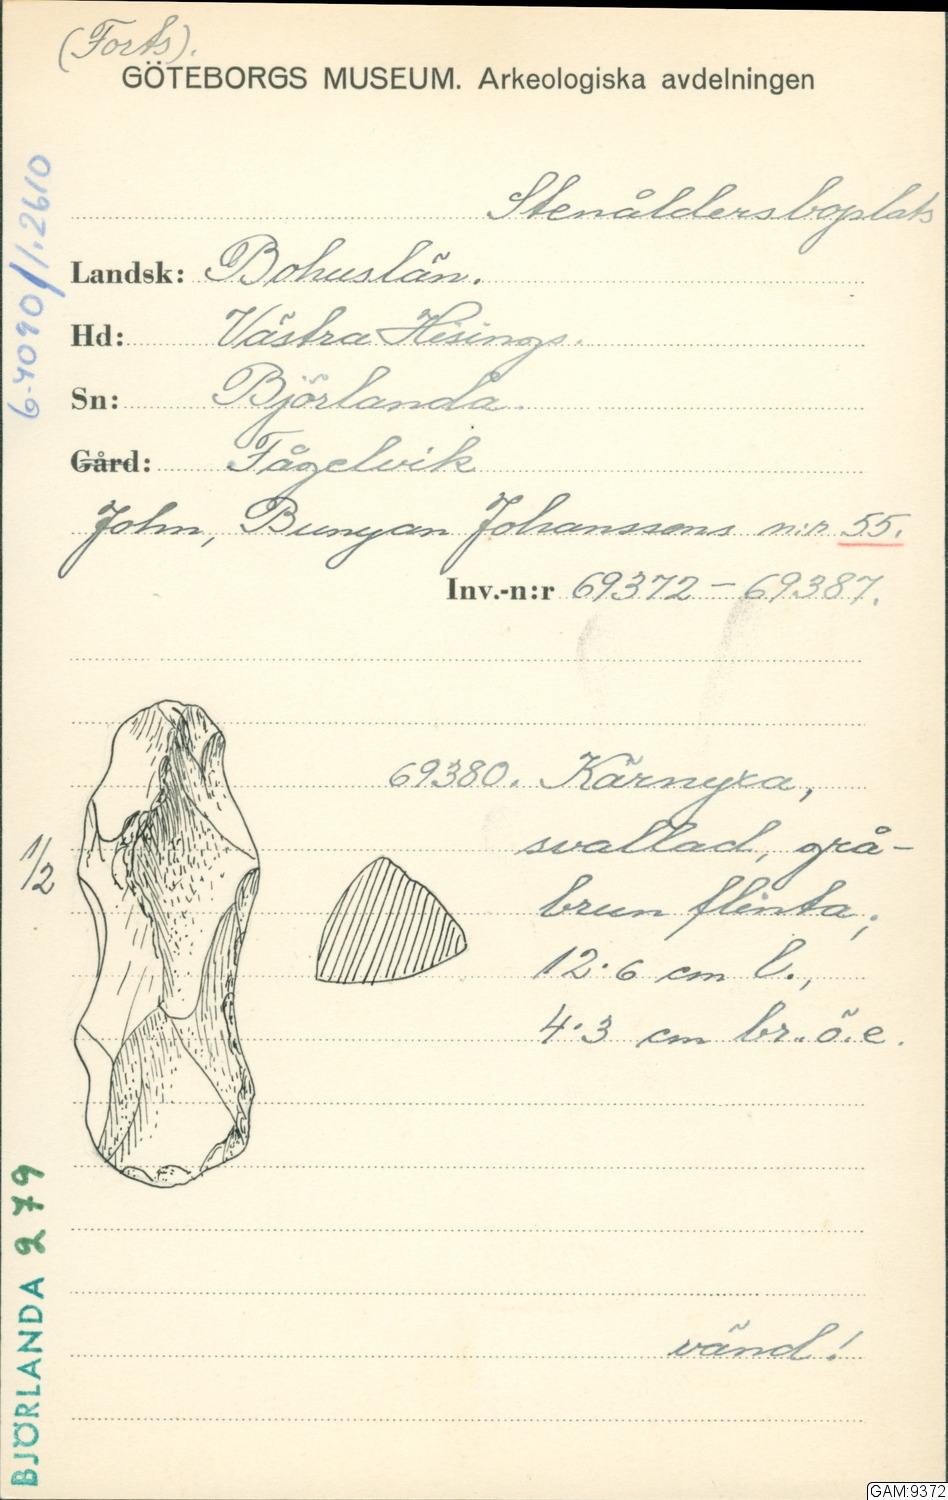 (Forts).
GÖTEBORGS MUSEUM. Arkeologiska avdelningen
Stenåldersboplats
Landsk: Bohuslän.
Hd: Västra Hisings.
Sn: Björlanda.
Gård: Fågelvik
John, Bunyan Johanssons n:r 55.
Inv.-n:r 69372 – 69387.
69380. Kärnyxa,
svallad, grå-
brun flinta;
12.6 cm l.,
4.3 cm br. ö. e.
1/2
vänd!
BJÖRLANDA 279
GAM:9372